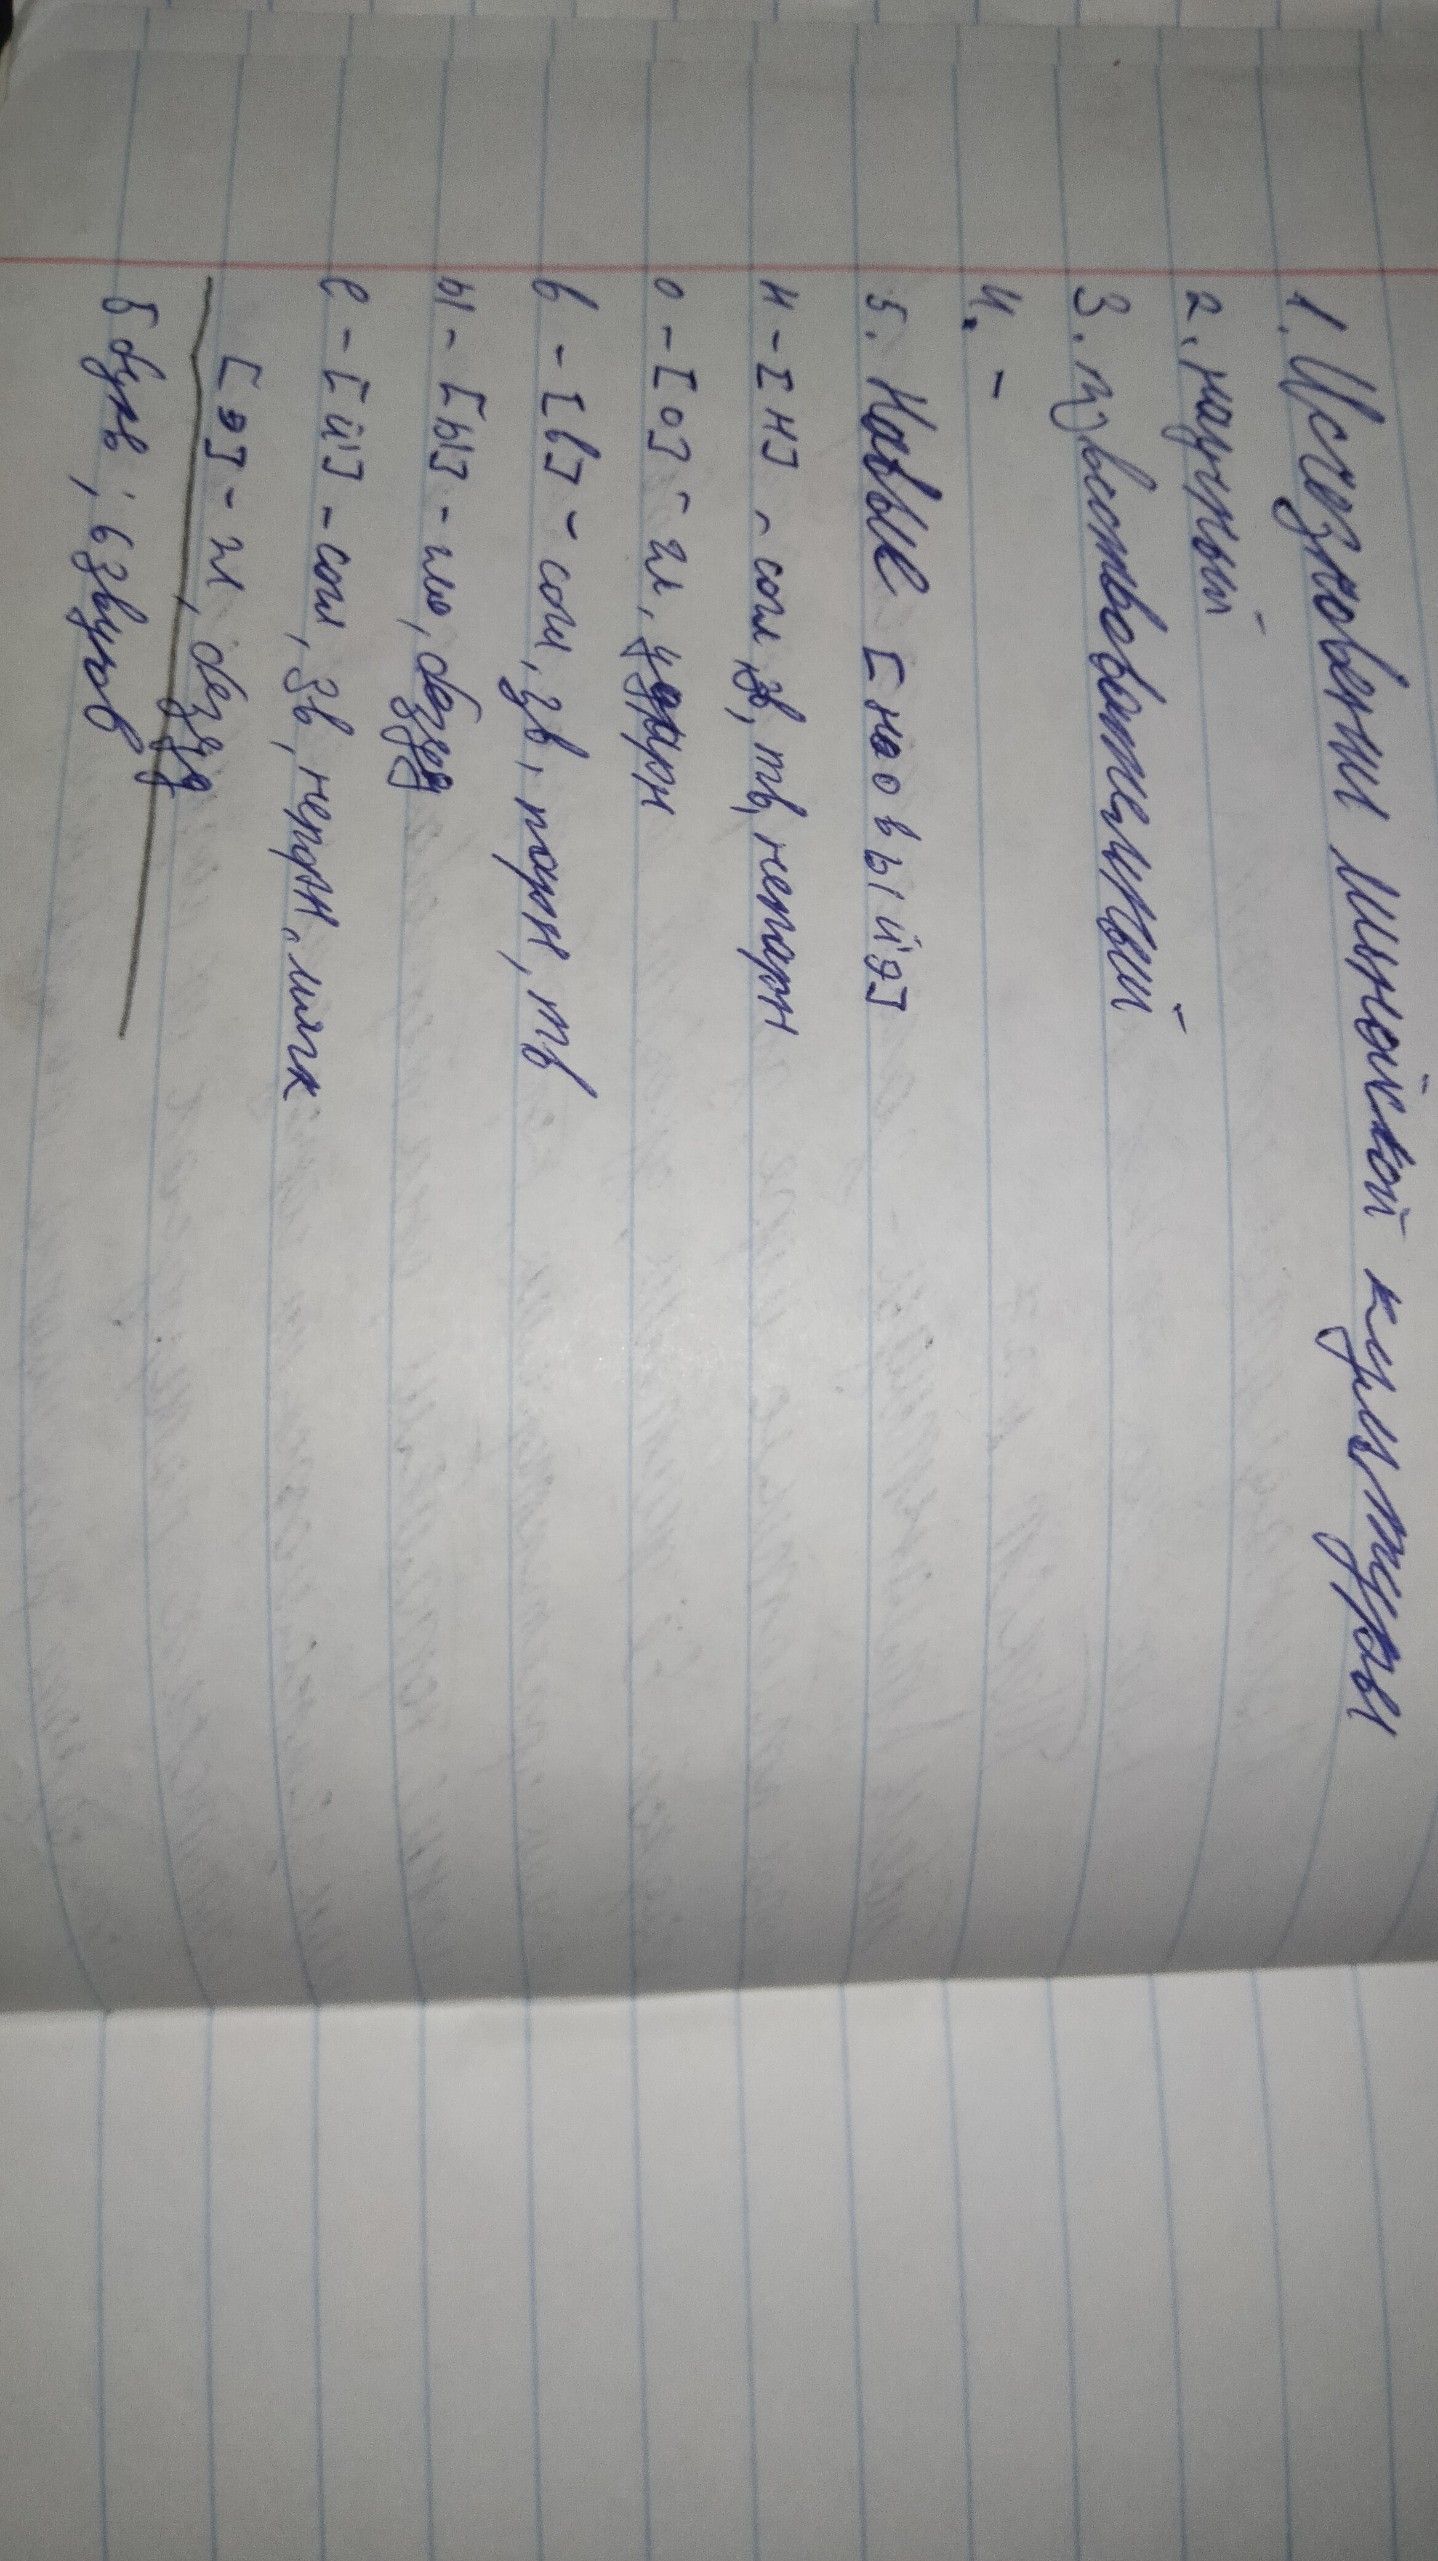 1. Исчезновении минойской культуры
2. научный
3. повествовательный
4. -
5. Новые [н о в ы й' э]
н - [н] - согл, зв, тв, непарн
о - [о] - гл, ударн
в - [в] - согл, зв, парн, тв
ы - [ы] - гл, безуд
е - [й'] - согл, зв, непарн, мягк
[э] - гл, безуд
5 букв; 6 звуков